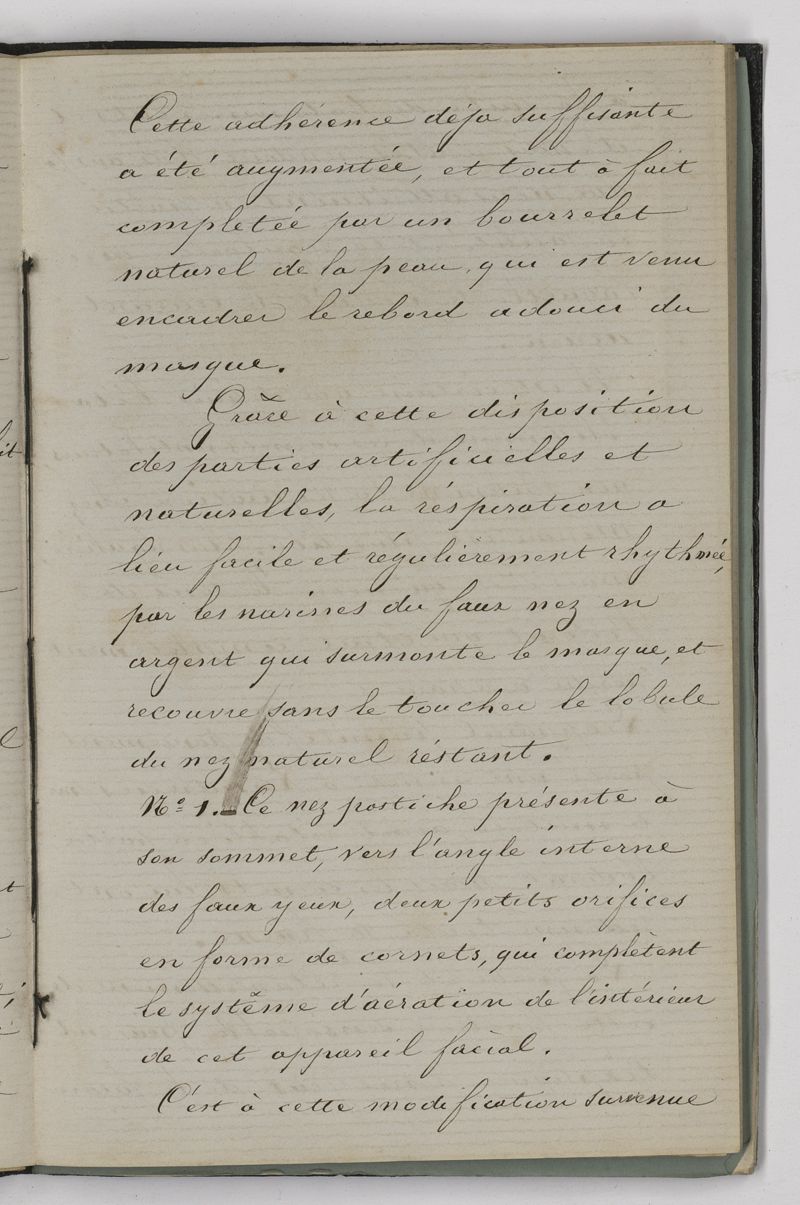 Cette adhérence déja suffisante
a été augmentée, et tout à fait
completée par un bourrelet
naturel de la peau, qui est venu
encadrer le rebord adouci du
masque.
Grâce à cette disposition
des parties artificielles et
naturelles, la réspiration a
lieu facile et régulièrement rhythmée,
par les narines du faux nez en
argent qui surmonte le masque, et
recouvre sans le toucher le lobule
du nez naturel réstant.
No 1. _ Ce nez postiche présente à
son sommet, vers l'angle interne
des faux yeux, deux petits orifices
en forme de cornets, qui complètent
le système d'aération de l'intérieur
de cet appareil facial.
C'est à cette modification survenue